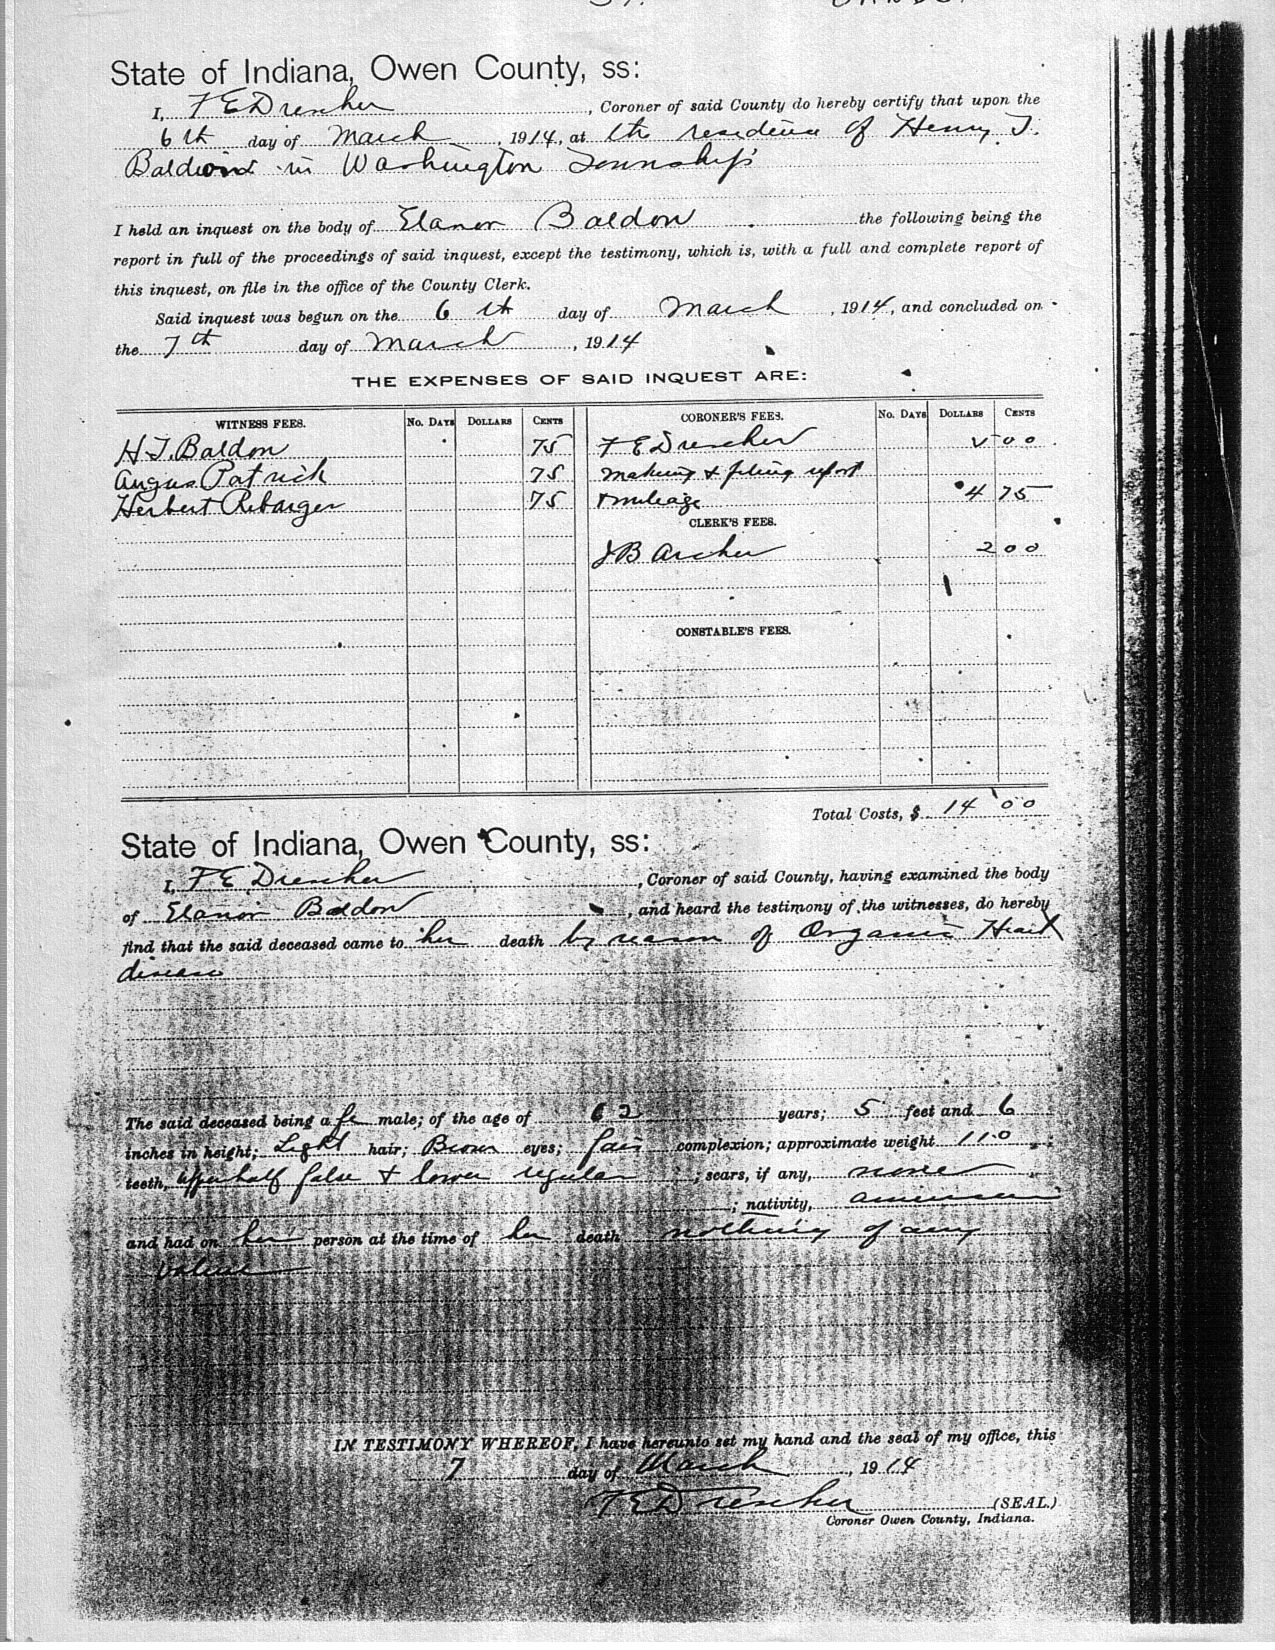 State of Indiana, Owen County, ss:
I, F E Drescher, Coroner of said County do hereby certify that upon the
6th day of March, 1914, at the residence of Henry T.
in Washington Township
I held an inquest on the body of Elanor Baldon the following being the
report in full of the proceedings of said inquest, except the testimony, which is, with a full and complete report of
this inquest, on file in the office of the County Clerk.
Said inquest was begun on the 6 th day of March, 1914, and concluded on
the 7th day of March, 1914
THE EXPENSES OF SAID INQUEST ARE:
WITNESS FEES. No. DAYS DOLLARS CENTS CORONER'S FEES. No. DAYS DOLLARS CENTS
H.T. Baldon 75 F E Drescher 00
Angus Patrick 75 making & filing report
Herbert Rebarger 75 & mileage 4 75
CLERK'S FEES.
J B Archer 2 00
CONSTABLE'S FEES.
Total Costs, $ 14 00
State of Indiana, Owen County, ss:
I, F E Drescher, Coroner of said County, having examined the body
of Elanor Baldon, and heard the testimony of the witnesses, do hereby
find that the said deceased came to her death by reason of Organic Heart
disease
The said deceased being a fe male; of the age of 62 years; 5 feet and 6
inches in height; Light hair; Brown eyes; fair complexion; approximate weight 110;
teeth, upper half false & lower regular; scars, if any, none
; nativity, american
and had on her person at the time of her death nothing of any
value
IN TESTIMONY WHEREOF, I have hereunto set my hand and the seal of my office, this
7 day of March, 1914
F E Drescher (SEAL.)
Coroner Owen County, Indiana.